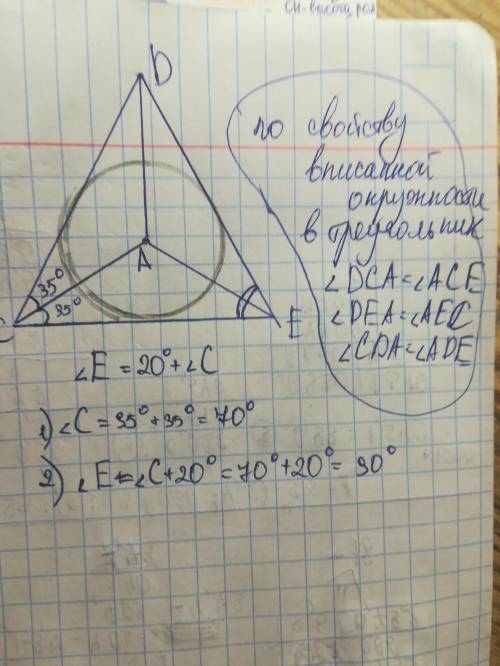 СН-высота, рав
D
по свойству
вписанной
окружности
в треугольник
∠DCA=∠ACE
∠DEA=∠AEC
∠CDA=∠ADE
A
35°
35°
C
E
∠E = 20° + ∠C
1) ∠C = 35° + 35° = 70°
2) ∠E = ∠C + 20° = 70° + 20° = 90°